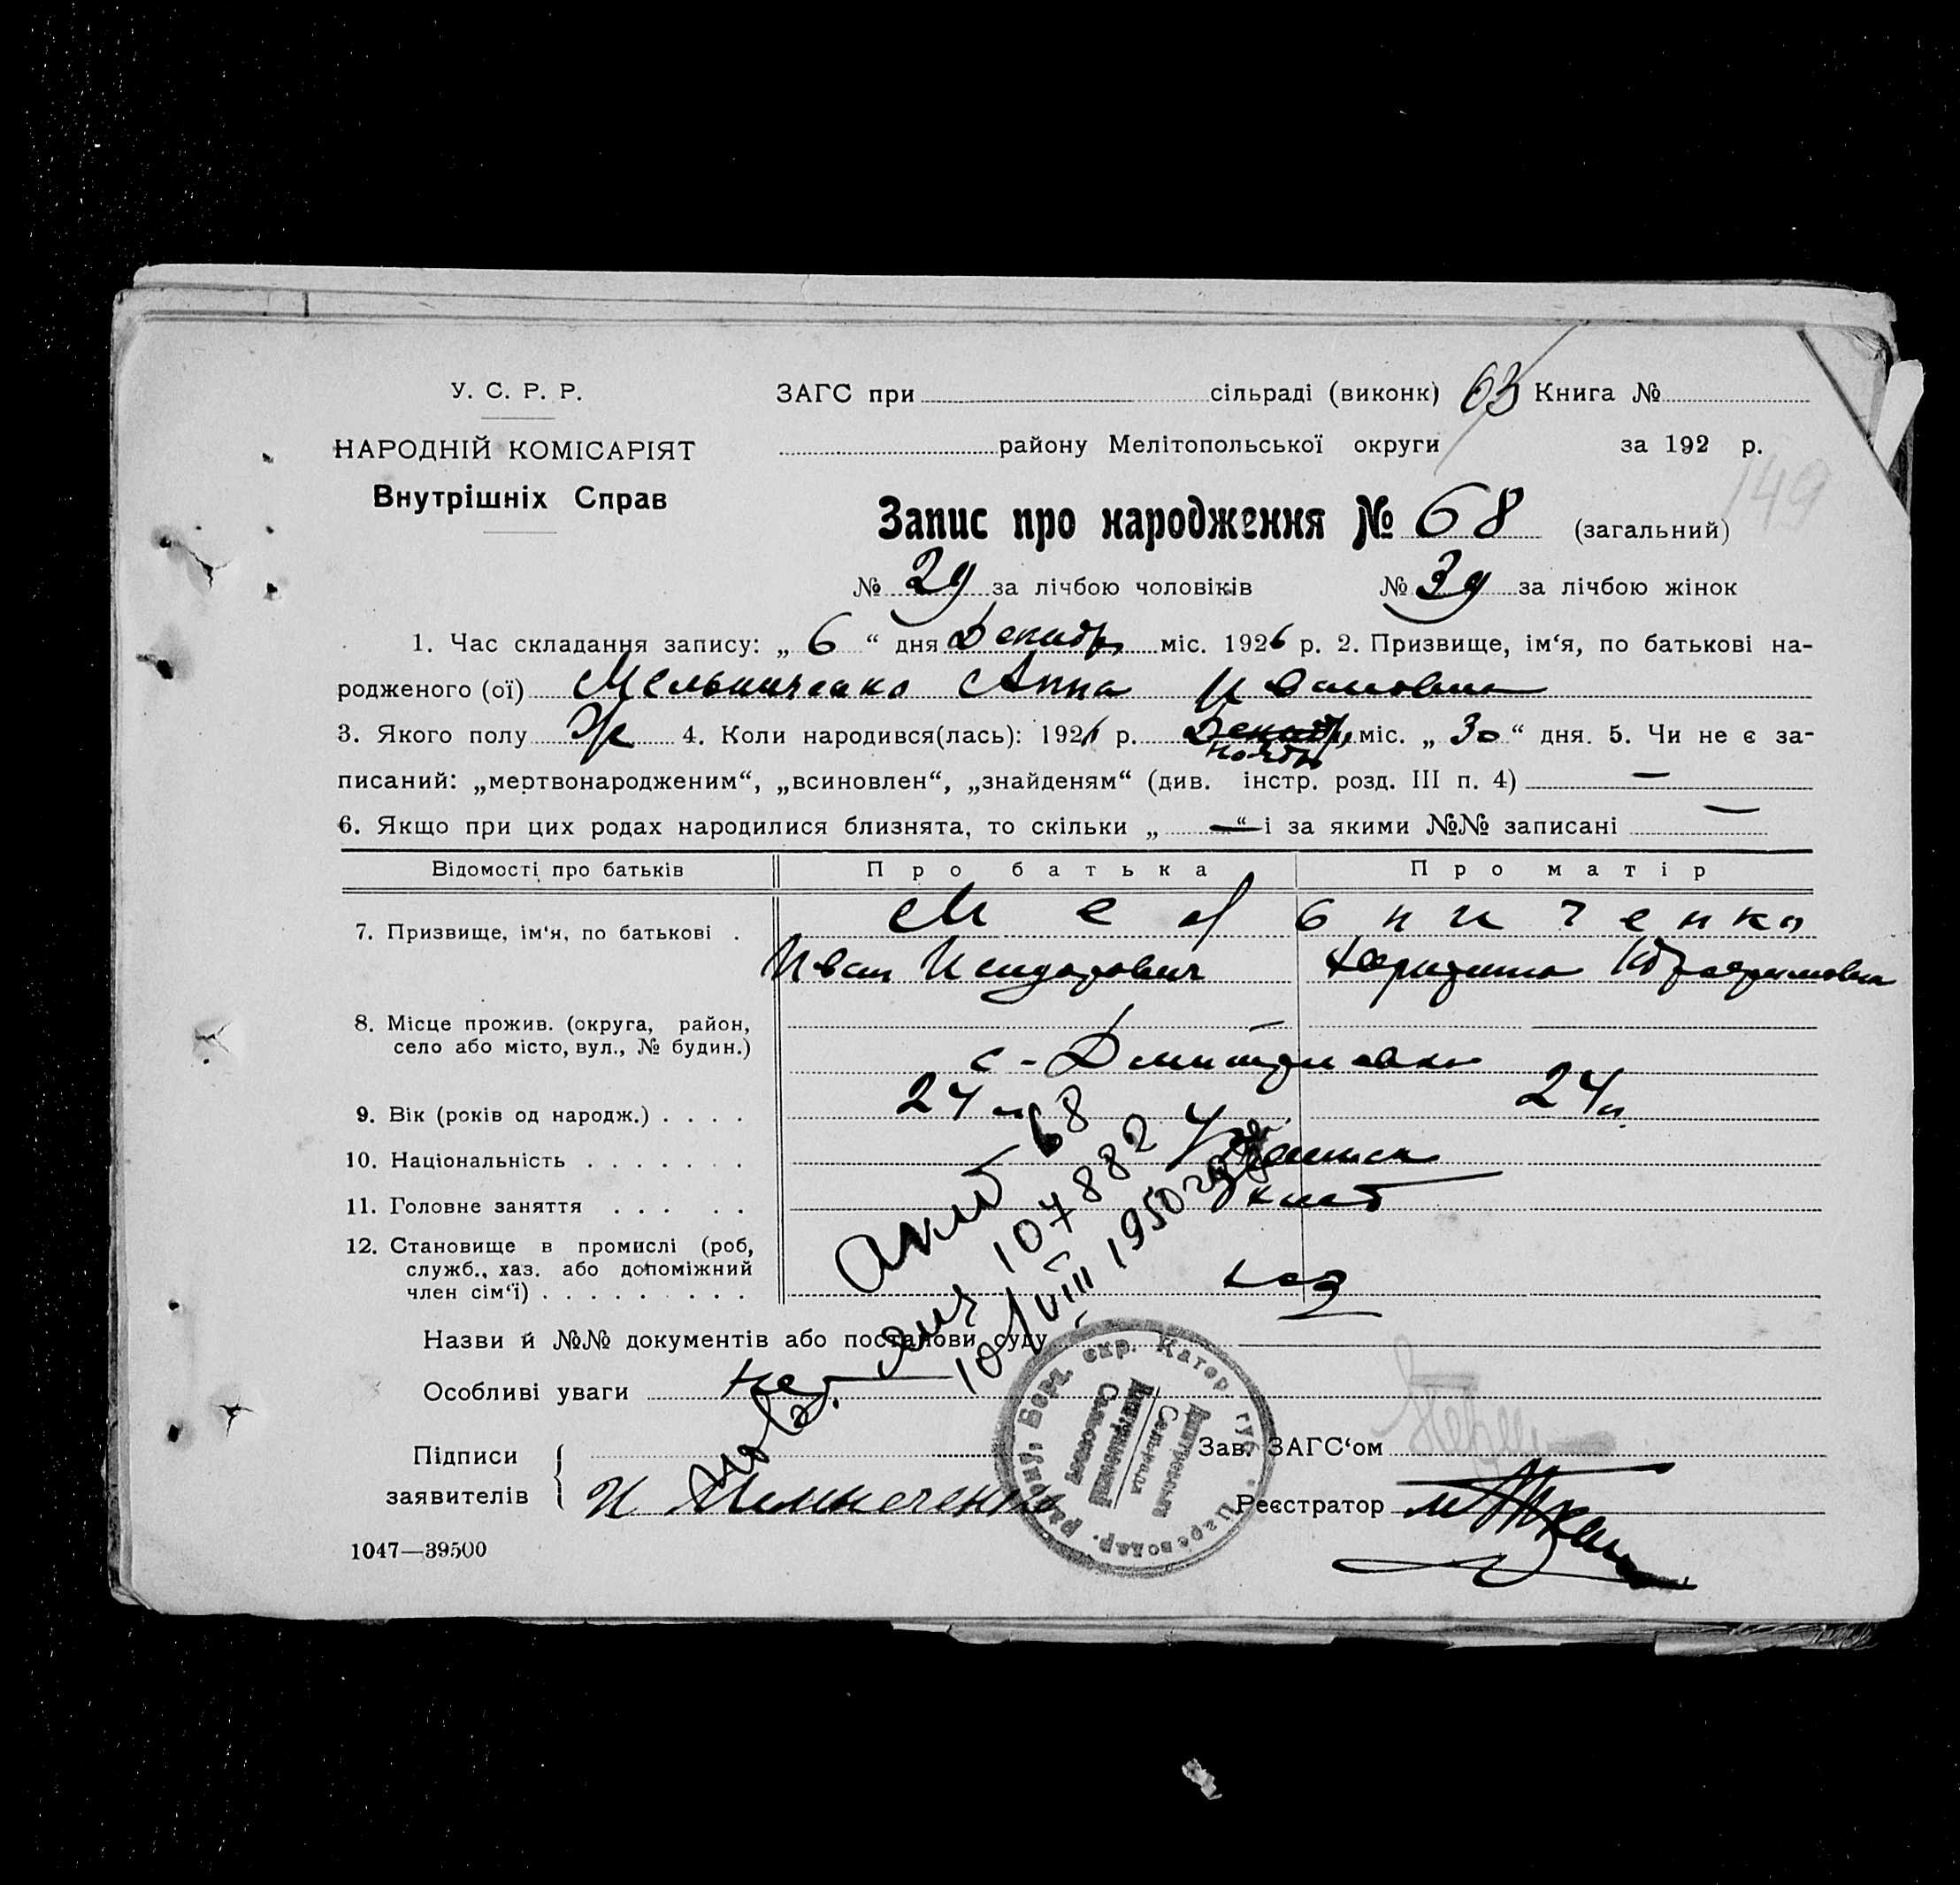 У. С. Р. Р.
НАРОДНІЙ КОМІСАРІЯТ
Внутрішніх Справ
ЗАГС при сільраді (виконк) 63 Книга №
району Мелітопольської округи за 192 р.
149
Запис про народження № 68 (загальний)
№ 29 за лічбою чоловіків № 39 за лічбою жінок
1. Час складання запису: „ 6 “ дня Декабр міс. 1926 р. 2. Призвище, ім‘я, по батькові на-
родженого (ої) Мельниченко Анна Ивановна
3. Якого полу Ж 4. Коли народився(лась): 1926 р. Декабр міс. „ 30 “ дня. 5. Чи не є за-
ноябр
писаний: „мертвонародженим“, „всиновлен“, „знайденям“ (див. інстр. розд. III п. 4) —
6. Якщо при цих родах народилися близнята, то скільки „ — “ і за якими №№ записані —
Відомості про батьків Про батька Про матір
7. Призвище, ім‘я, по батькові . Мельниченко
Иван
8. Місце прожив. (округа, район,
село або місто, вул., № будин.) с - Дмитриевка
9. Вік (років од народж.) . . . . 24 24
10. Національність . . . . . . .
11. Головне заняття . . . . .
12. Становище в промислі (роб,
служб., хаз. або допоміжний
член сім‘ї) . . . . . . . . . хаз
Акт 68
107882
10/VIII 1950
Назви й №№ документів або постанови суду
Особливі уваги
Підписи
заявителів И Мельниченко
Зав. ЗАГС‘ом
Реєстратор
1047—39500